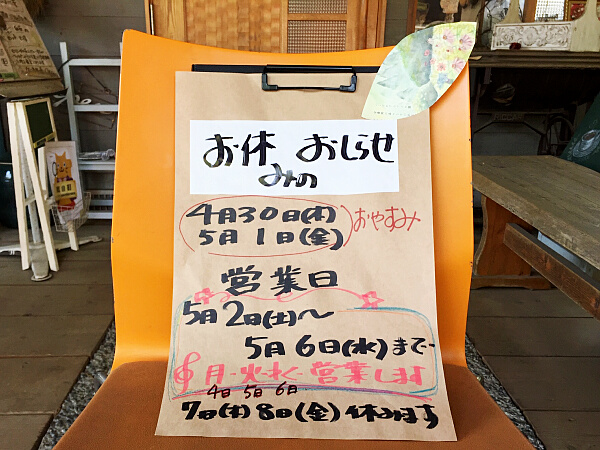 お休みの おしらせ
4月30日(木)
5月1日(金)
おやすみ
営業日
5月2日(土)〜
5月6日(水)まで
月・火・水・営業します
4日 5日 6日
7日(木)8日(金)休みます